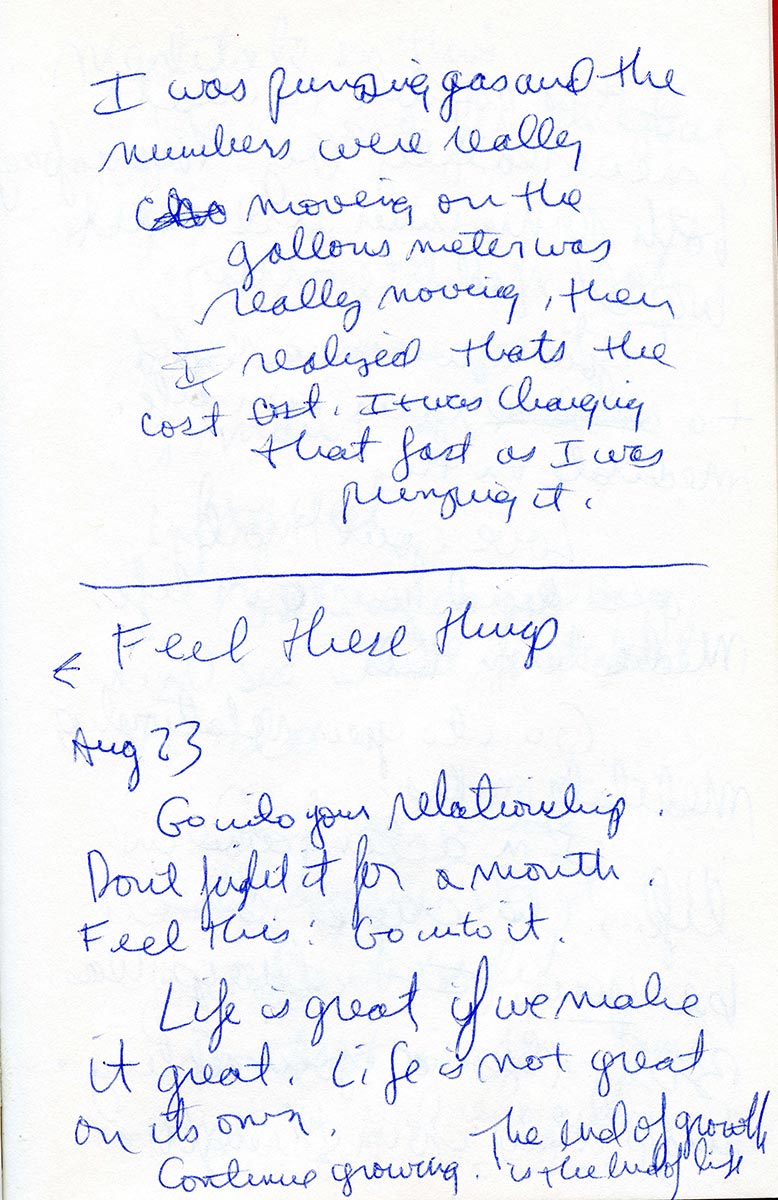 I was pumping gas and the
numbers were really
moving on the
gallons meter was
really moving, then
I realized thats the
cost cost. It was changing
that fast as I was
pumping it.
Feel these things
Aug 23
Go into your relationship.
Don't fight it for a month.
Feel this: Go into it.
Life is great if we make
it great. Life is not great
on its own.
Continue growing. The end of growth
is the end of life